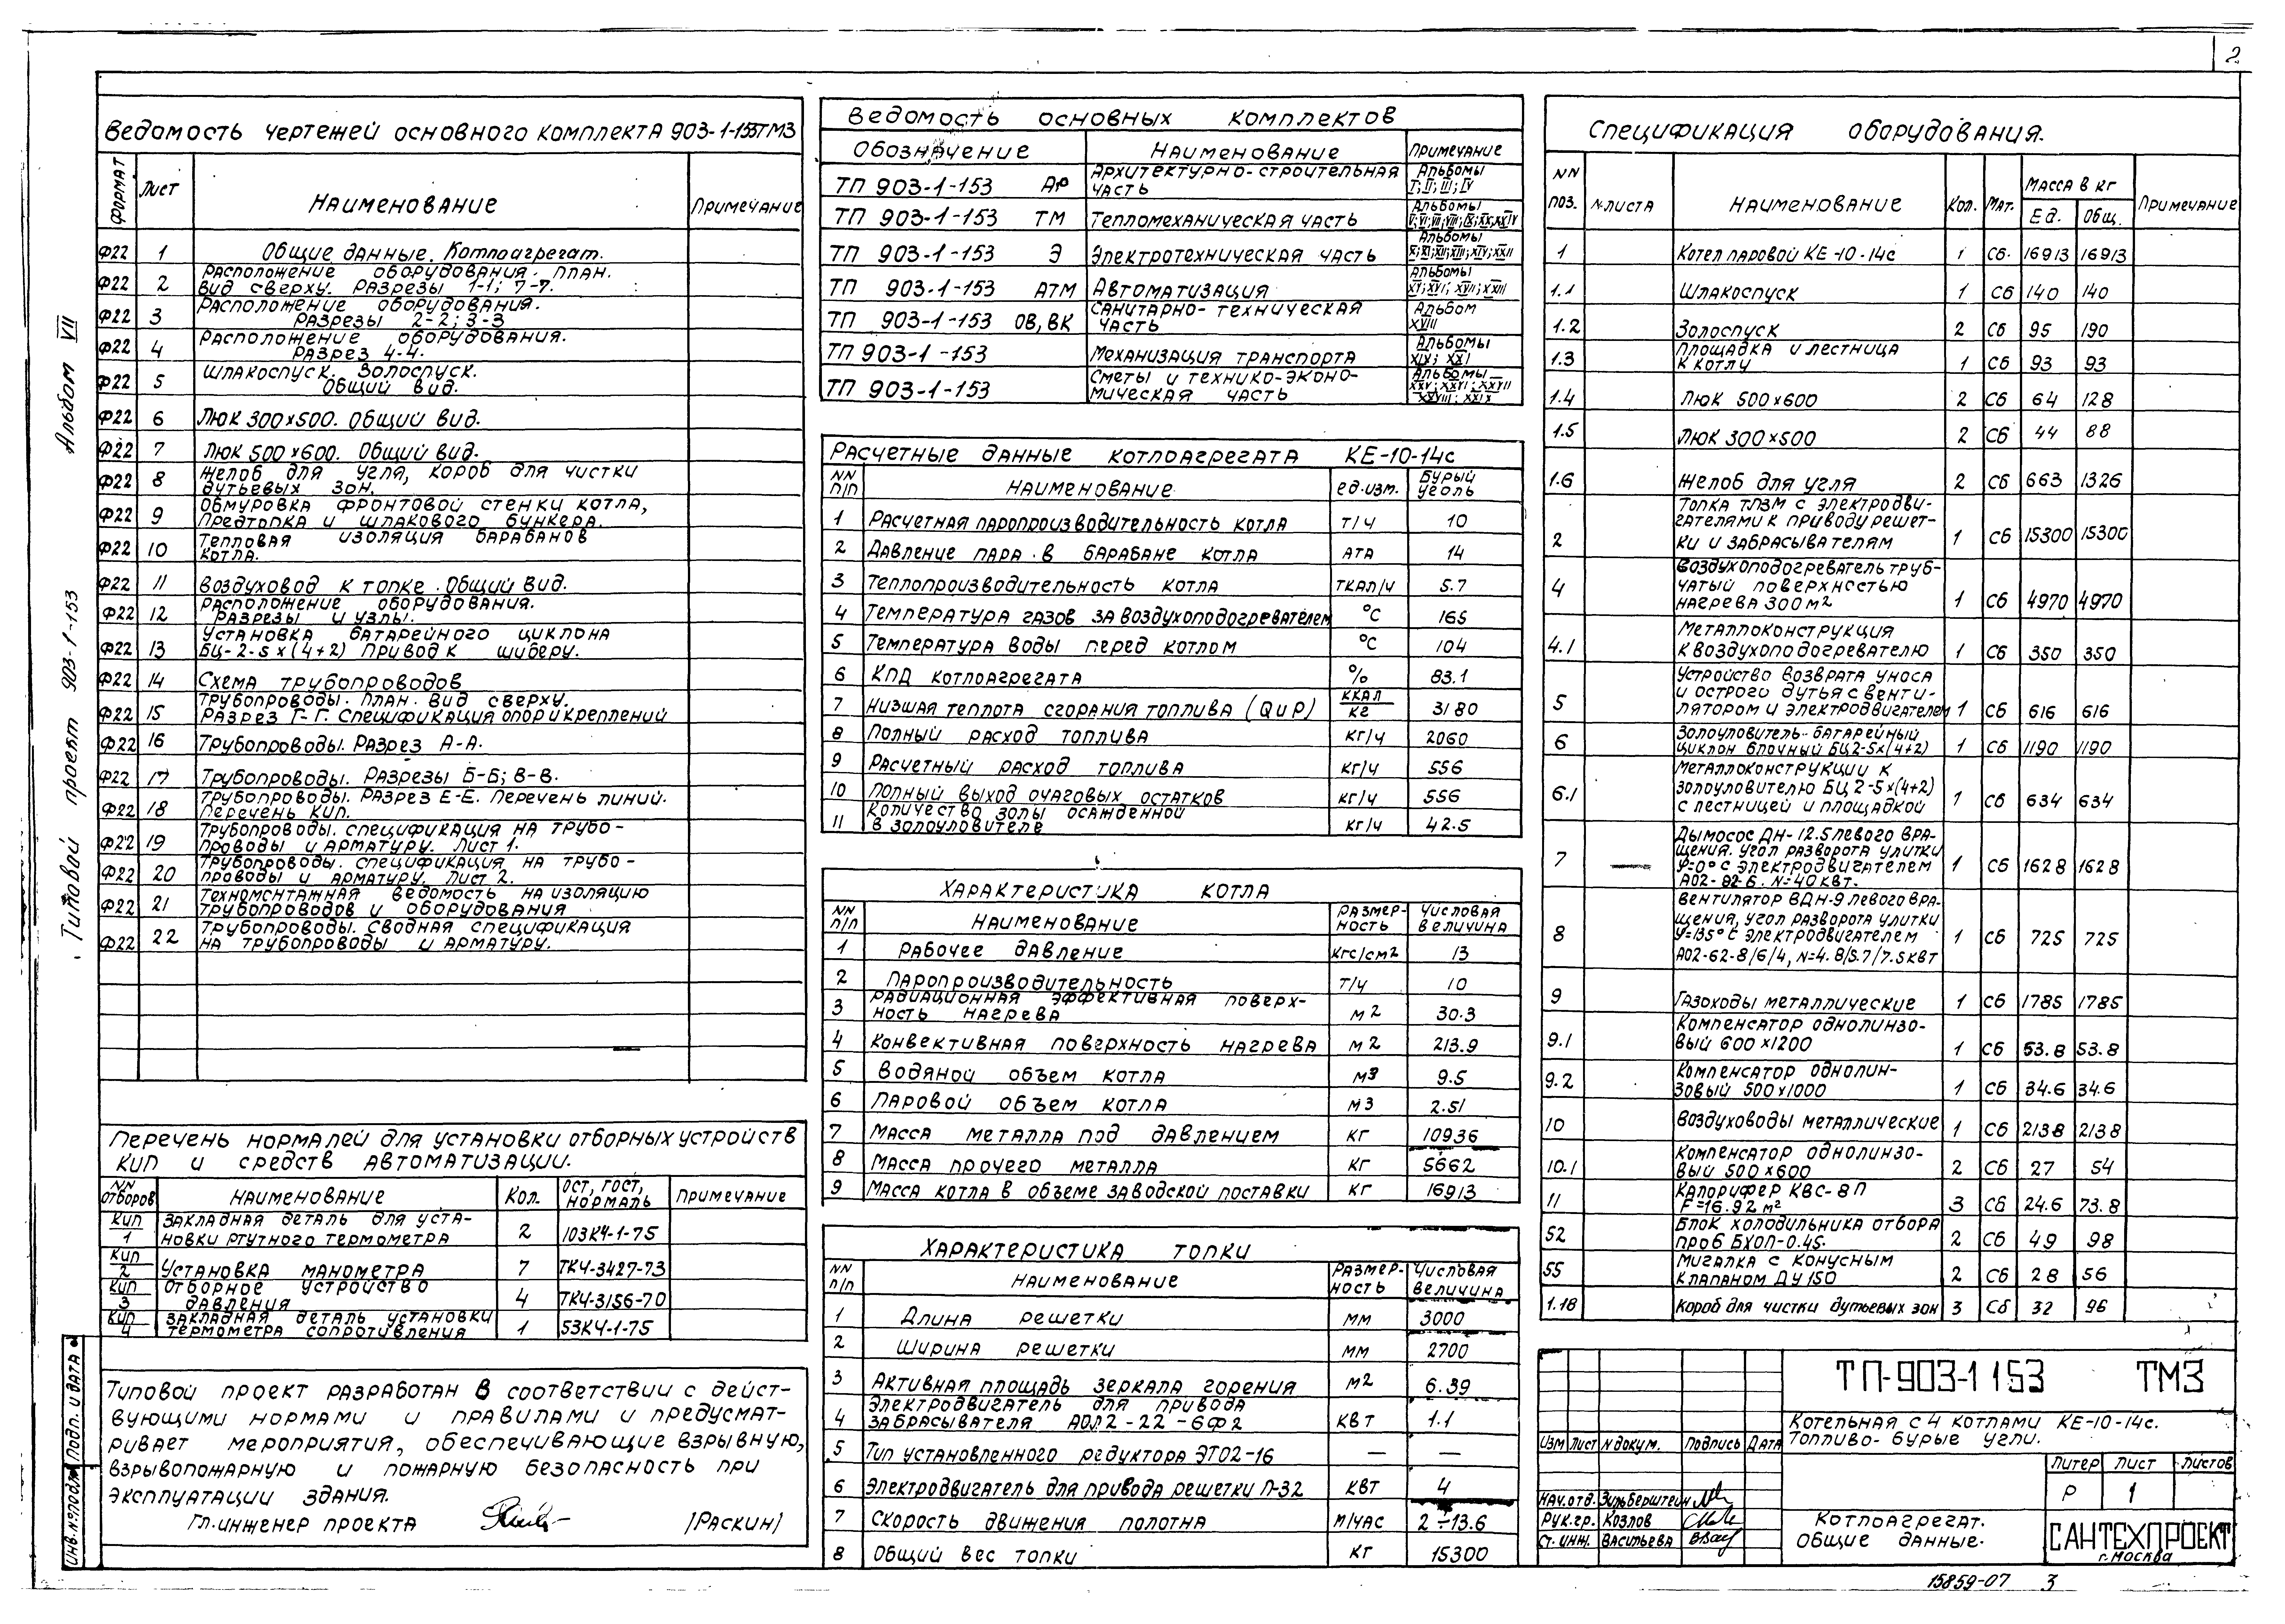 2
Альбом VII
Типовой проект 903-1-153
Ведомость чертежей основного комплекта 903-1-153ТМ3
Формат Лист Наименование Примечание
Ф22 1 Общие данные. Котлоагрегат.
Ф22 2 Расположение оборудования. План.
Вид сверху. Разрезы 1-1; 7-7.
Ф22 3 Расположение оборудования.
Разрезы 2-2; 3-3
Ф22 4 Расположение оборудования.
Разрез 4-4.
Ф22 5 Шлакоспуск. Золоспуск.
Общий вид.
Ф22 6 Люк 300×500. Общий вид.
Ф22 7 Люк 500×600. Общий вид.
Ф22 8 Желоб для угля, короб для чистки
дутьевых зон.
Ф22 9 Обмуровка фронтовой стенки котла,
предтопка и шлакового бункера.
Ф22 10 Тепловая изоляция барабанов
котла.
Ф22 11 Воздуховод к топке. Общий вид.
Ф22 12 Расположение оборудования.
Разрезы и узлы.
Ф22 13 Установка батарейного циклона
БЦ-2-5×(4+2) Привод к шиберу.
Ф22 14 Схема трубопроводов
Ф22 15 Трубопроводы. План. Вид сверху.
Разрез Г-Г. Спецификация опор и креплений
Ф22 16 Трубопроводы. Разрез А-А.
Ф22 17 Трубопроводы. Разрезы Б-Б; В-В.
Ф22 18 Трубопроводы. Разрез Е-Е. Перечень линий.
Перечень КИП.
Ф22 19 Трубопроводы. Спецификация на трубо-
проводы и арматуру. Лист 1.
Ф22 20 Трубопроводы. Спецификация на трубо-
проводы и арматуру. Лист 2.
Ф22 21 Техномонтажная ведомость на изоляцию
трубопроводов и оборудования
Ф22 22 Трубопроводы. Сводная спецификация
на трубопроводы и арматуру.
Перечень нормалей для установки отборных устройств
КИП и средств автоматизации.
NN отборов Наименование Кол. ОСТ, ГОСТ, нормаль Примечание
КИП 1 Закладная деталь для уста-
новки ртутного термометра 2 103К4-1-75
КИП 2 Установка манометра 7 ТК4-3427-73
КИП 3 Отборное устройство
давления 4 ТК4-3156-70
КИП 4 Закладная деталь установки
термометра сопротивления 1 53К4-1-75
Типовой проект разработан в соответствии с дейст-
вующими нормами и правилами и предусмат-
ривает мероприятия, обеспечивающие взрывную,
взрывопожарную и пожарную безопасность при
эксплуатации здания.
Гл. инженер проекта /Раскин/
Инв. № подл. Подп. и дата
Ведомость основных комплектов
Обозначение Наименование Примечание
ТП 903-1-153 АР Архитектурно-строительная
часть Альбомы I; II; III; IV
ТП 903-1-153 ТМ Тепломеханическая часть Альбомы
ТП 903-1-153 Э Электротехническая часть Альбомы
ТП 903-1-153 АТМ Автоматизация Альбомы XV; XVI; XVII; XXIII
ТП 903-1-153 ОВ, ВК Санитарно-техническая
часть Альбом XVIII
ТП 903-1-153 Механизация транспорта Альбомы XIX; XXI
ТП 903-1-153 Сметы и технико-эконо-
мическая часть Альбомы XXV; XXVI; XXVII XXVIII; XXIX
Расчетные данные котлоагрегата КЕ-10-14с
NN п/п Наименование ед. изм. Бурый уголь
1 Расчетная паропроизводительность котла т/ч 10
2 Давление пара в барабане котла ата 14
3 Теплопроизводительность котла Гкал/ч 5.7
4 Температура газов за воздухоподогревателем °С 165
5 Температура воды перед котлом °С 104
6 КПД котлоагрегата % 83.1
7 Низшая теплота сгорания топлива (Qнр) ккал/кг 3180
8 Полный расход топлива кг/ч 2060
9 Расчетный расход топлива кг/ч 556
10 Полный выход очаговых остатков кг/ч 556
11 Количество золы осажденной
в золоуловителе кг/ч 42.5
Характеристика котла
NN п/п Наименование Размерность Числовая величина
1 Рабочее давление кгс/см2 13
2 Паропроизводительность т/ч 10
3 Радиационная эффективная поверх-
ность нагрева м2 30.3
4 Конвективная поверхность нагрева м2 213.9
5 Водяной объем котла м3 9.5
6 Паровой объем котла м3 2.51
7 Масса металла под давлением кг 10936
8 Масса прочего металла кг 5662
9 Масса котла в объеме заводской поставки кг 16913
Характеристика топки
NN п/п Наименование Размерность Числовая величина
1 Длина решетки мм 3000
2 Ширина решетки мм 2700
3 Активная площадь зеркала горения м2 6.39
4 Электродвигатель для привода
забрасывателя АОЛ2-22-6Ф2 кВт 1.1
5 Тип установленного редуктора ЭТО2-16 — —
6 Электродвигатель для привода решетки П-32 кВт 4
7 Скорость движения полотна м/час 2÷13.6
8 Общий вес топки кг 15300
Спецификация оборудования.
NN поз. N листа Наименование Кол. Мат. Масса в кг Ед. Общ. Примечание
1 Котел паровой КЕ-10-14с 1 Сб. 16913 16913
1.1 Шлакоспуск 1 Сб 140 140
1.2 Золоспуск 2 Сб 95 190
1.3 Площадка и лестница
к котлу 1 Сб 93 93
1.4 Люк 500×600 2 Сб 64 128
1.5 Люк 300×500 2 Сб 44 88
1.6 Желоб для угля 2 Сб 663 1326
2 Топка ТЛЗМ с электродви-
гателями к приводу решет-
ки и забрасывателям 1 Сб 15300 15300
4 Воздухоподогреватель труб-
чатый поверхностью
нагрева 300 м2 1 Сб 4970 4970
4.1 Металлоконструкция
к воздухоподогревателю 1 Сб 350 350
5 Устройство возврата уноса
и острого дутья с венти-
лятором и электродвигателем 1 Сб 616 616
6 Золоуловитель-батарейный
циклон блочный БЦ2-5×(4+2) 1 Сб 1190 1190
6.1 Металлоконструкции к
золоуловителю БЦ 2-5×(4+2)
с лестницей и площадкой 1 Сб 634 634
7 — Дымосос ДН-12.5 левого вра-
щения. Угол разворота улитки
φ=0° с электродвигателем
АО2-82-6. N=40 кВт. 1 Сб 1628 1628
8 Вентилятор ВДН-9 левого вра-
щения, угол разворота улитки
φ=135° с электродвигателем
АО2-62-8/6/4, N=4.8/5.7/7.5 кВт 1 Сб 725 725
9 Газоходы металлические 1 Сб 1785 1785
9.1 Компенсатор однолинзо-
вый 600×1200 1 Сб 53.8 53.8
9.2 Компенсатор однолин-
зовый 500×1000 1 Сб 34.6 34.6
10 Воздуховоды металлические 1 Сб 2138 2138
10.1 Компенсатор однолинзо-
вый 500×600 2 Сб 27 54
11 Калорифер КВС-8П
F=16.92 м² 3 Сб 24.6 73.8
52 Блок холодильника отбора
проб БХОП-0.45. 2 Сб 49 98
55 Мигалка с конусным
клапаном ДУ 150 2 Сб 28 56
1.18 Короб для чистки дутьевых зон 3 Сб 32 96
ТП-903-1 153 ТМ3
Котельная с 4 котлами КЕ-10-14с.
Топливо-бурые угли.
Изм Лист N докум. Подпись Дата
Литер Лист Листов
Р 1
Нач. отд. Зильберштейн
Рук. гр. Козлов
Ст. инж. Васильева
Котлоагрегат.
Общие данные.
САНТЕХПРОЕКТ
г. Москва
15859-07 3